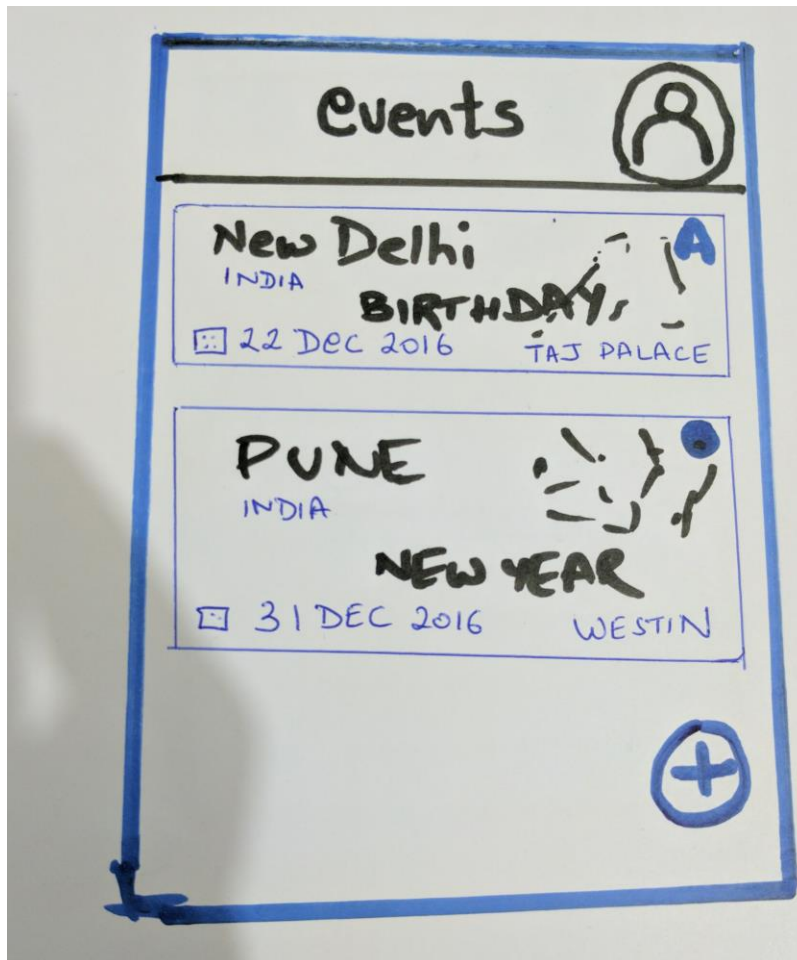 events
New Delhi A
INDIA
BIRTHDAY
22 DEC 2016 TAJ PALACE
PUNE
INDIA
NEW YEAR
31 DEC 2016 WESTIN